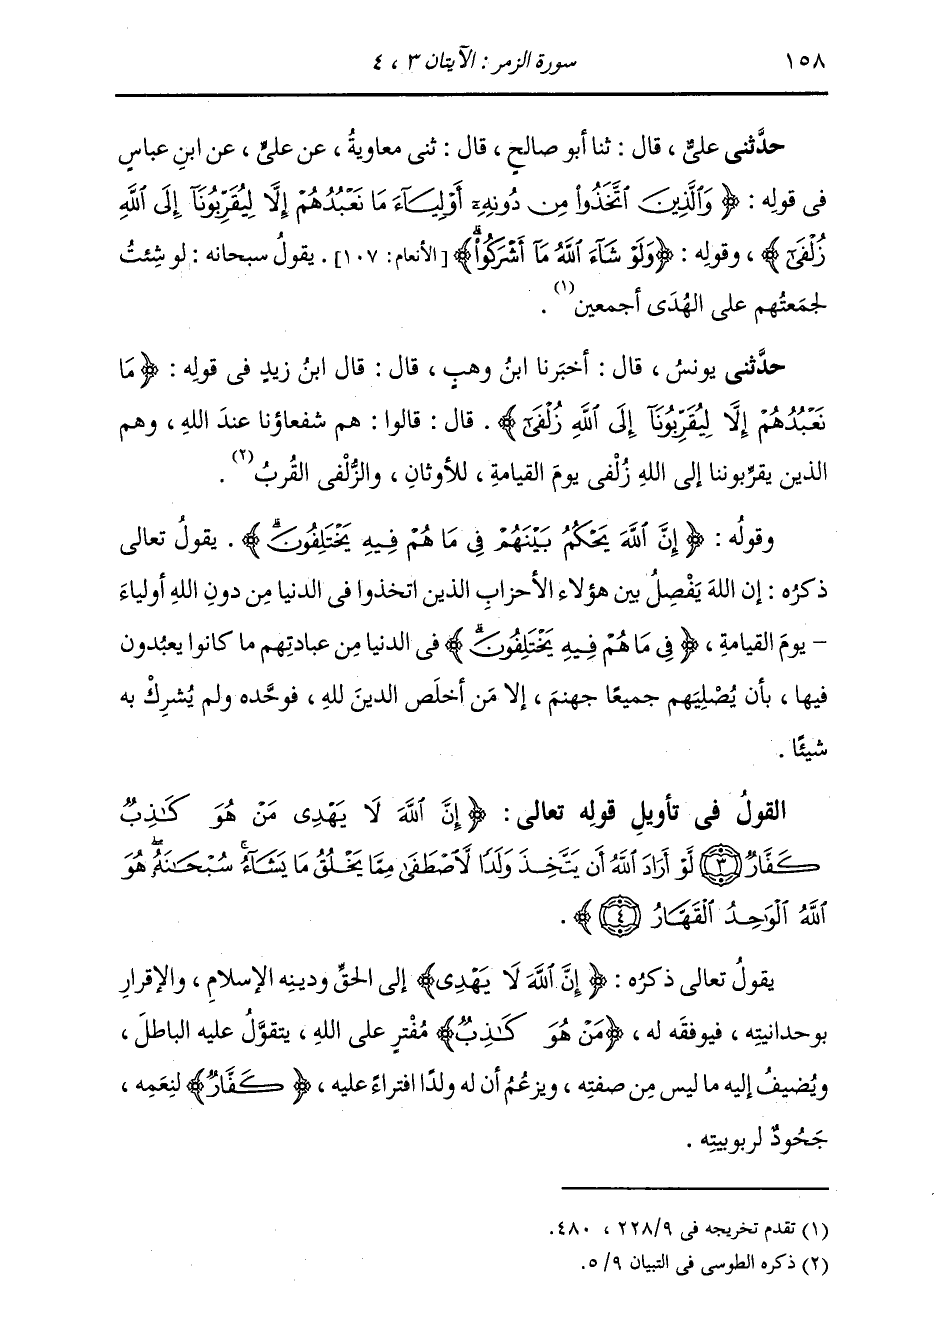 ١٥٨ سورة الزمر : الآيتان ٣ ، ٤
حدَّثنى علىٌّ ، قال : ثنا أبو صالحٍ ، قال : ثنى معاويةُ ، عن علىٍّ ، عن ابنِ عباسٍ
فى قولِه : ﴿ وَٱلَّذِينَ ٱتَّخَذُوا۟ مِن دُونِهِۦٓ أَوْلِيَآءَ مَا نَعْبُدُهُمْ إِلَّا لِيُقَرِّبُونَآ إِلَى ٱللَّهِ
زُلْفَىٰٓ ﴾ ، وقولِه : ﴿وَلَوْ شَآءَ ٱللَّهُ مَآ أَشْرَكُوا۟ۗ﴾ [الأنعام: ١٠٧] . يقولُ سبحانه : لو شِئتُ
لجمَعتُهم على الهُدَى أجمعين(١) .
حدَّثنى يونسُ ، قال : أخبَرنا ابنُ وهبٍ ، قال : قال ابنُ زيدٍ فى قولِه : ﴿ مَا
نَعْبُدُهُمْ إِلَّا لِيُقَرِّبُونَآ إِلَى ٱللَّهِ زُلْفَىٰٓ ﴾ . قال : قالوا : هم شفعاؤنا عندَ اللهِ ، وهم
الذين يقرِّبوننا إلى اللهِ زُلْفى يومَ القيامةِ ، للأوثانِ ، والزُّلْفى القُربُ(٢) .
وقولُه : ﴿ إِنَّ ٱللَّهَ يَحْكُمُ بَيْنَهُمْ فِى مَا هُمْ فِيهِ يَخْتَلِفُونَۗ ﴾ . يقولُ تعالى
ذكرُه : إن اللهَ يَفْصِلُ بين هؤلاء الأحزابِ الذين اتخذوا فى الدنيا مِن دونِ اللهِ أولياءَ
– يومَ القيامةِ ، ﴿ فِى مَا هُمْ فِيهِ يَخْتَلِفُونَۗ ﴾ فى الدنيا مِن عبادتِهم ما كانوا يعبُدون
فيها ، بأن يُصْلِيَهم جميعًا جهنمَ ، إلا مَن أخلَص الدينَ للهِ ، فوحَّده ولم يُشرِكْ به
شيئًا .
القولُ فى تأويلِ قولِه تعالى : ﴿ إِنَّ ٱللَّهَ لَا يَهْدِى مَنْ هُوَ كَـٰذِبٌ
كَفَّارٌ ٣ لَّوْ أَرَادَ ٱللَّهُ أَن يَتَّخِذَ وَلَدًا لَّٱصْطَفَىٰ مِمَّا يَخْلُقُ مَا يَشَآءُۚ سُبْحَـٰنَهُۥۖ هُوَ
ٱللَّهُ ٱلْوَٰحِدُ ٱلْقَهَّارُ ٤ ﴾ .
يقولُ تعالى ذكرُه : ﴿ إِنَّ ٱللَّهَ لَا يَهْدِى﴾ إلى الحقِّ ودينِه الإسلامِ ، والإقرارِ
بوحدانيتِه ، فيوفقَه له ، ﴿مَنْ هُوَ كَـٰذِبٌ﴾ مُفْترٍ على اللهِ ، يتقوَّلُ عليه الباطلَ ،
ويُضيفُ إليه ما ليس مِن صفتِه ، ويزعُمُ أن له ولدًا افتراءً عليه ، ﴿ كَفَّارٌ﴾ لنِعَمِه ،
جَحُودٌ لربوبيتِه .
(١) تقدم تخريجه فى ٢٢٨/٩ ، ٤٨٠.
(٢) ذكره الطوسى فى التبيان ٥/٩.